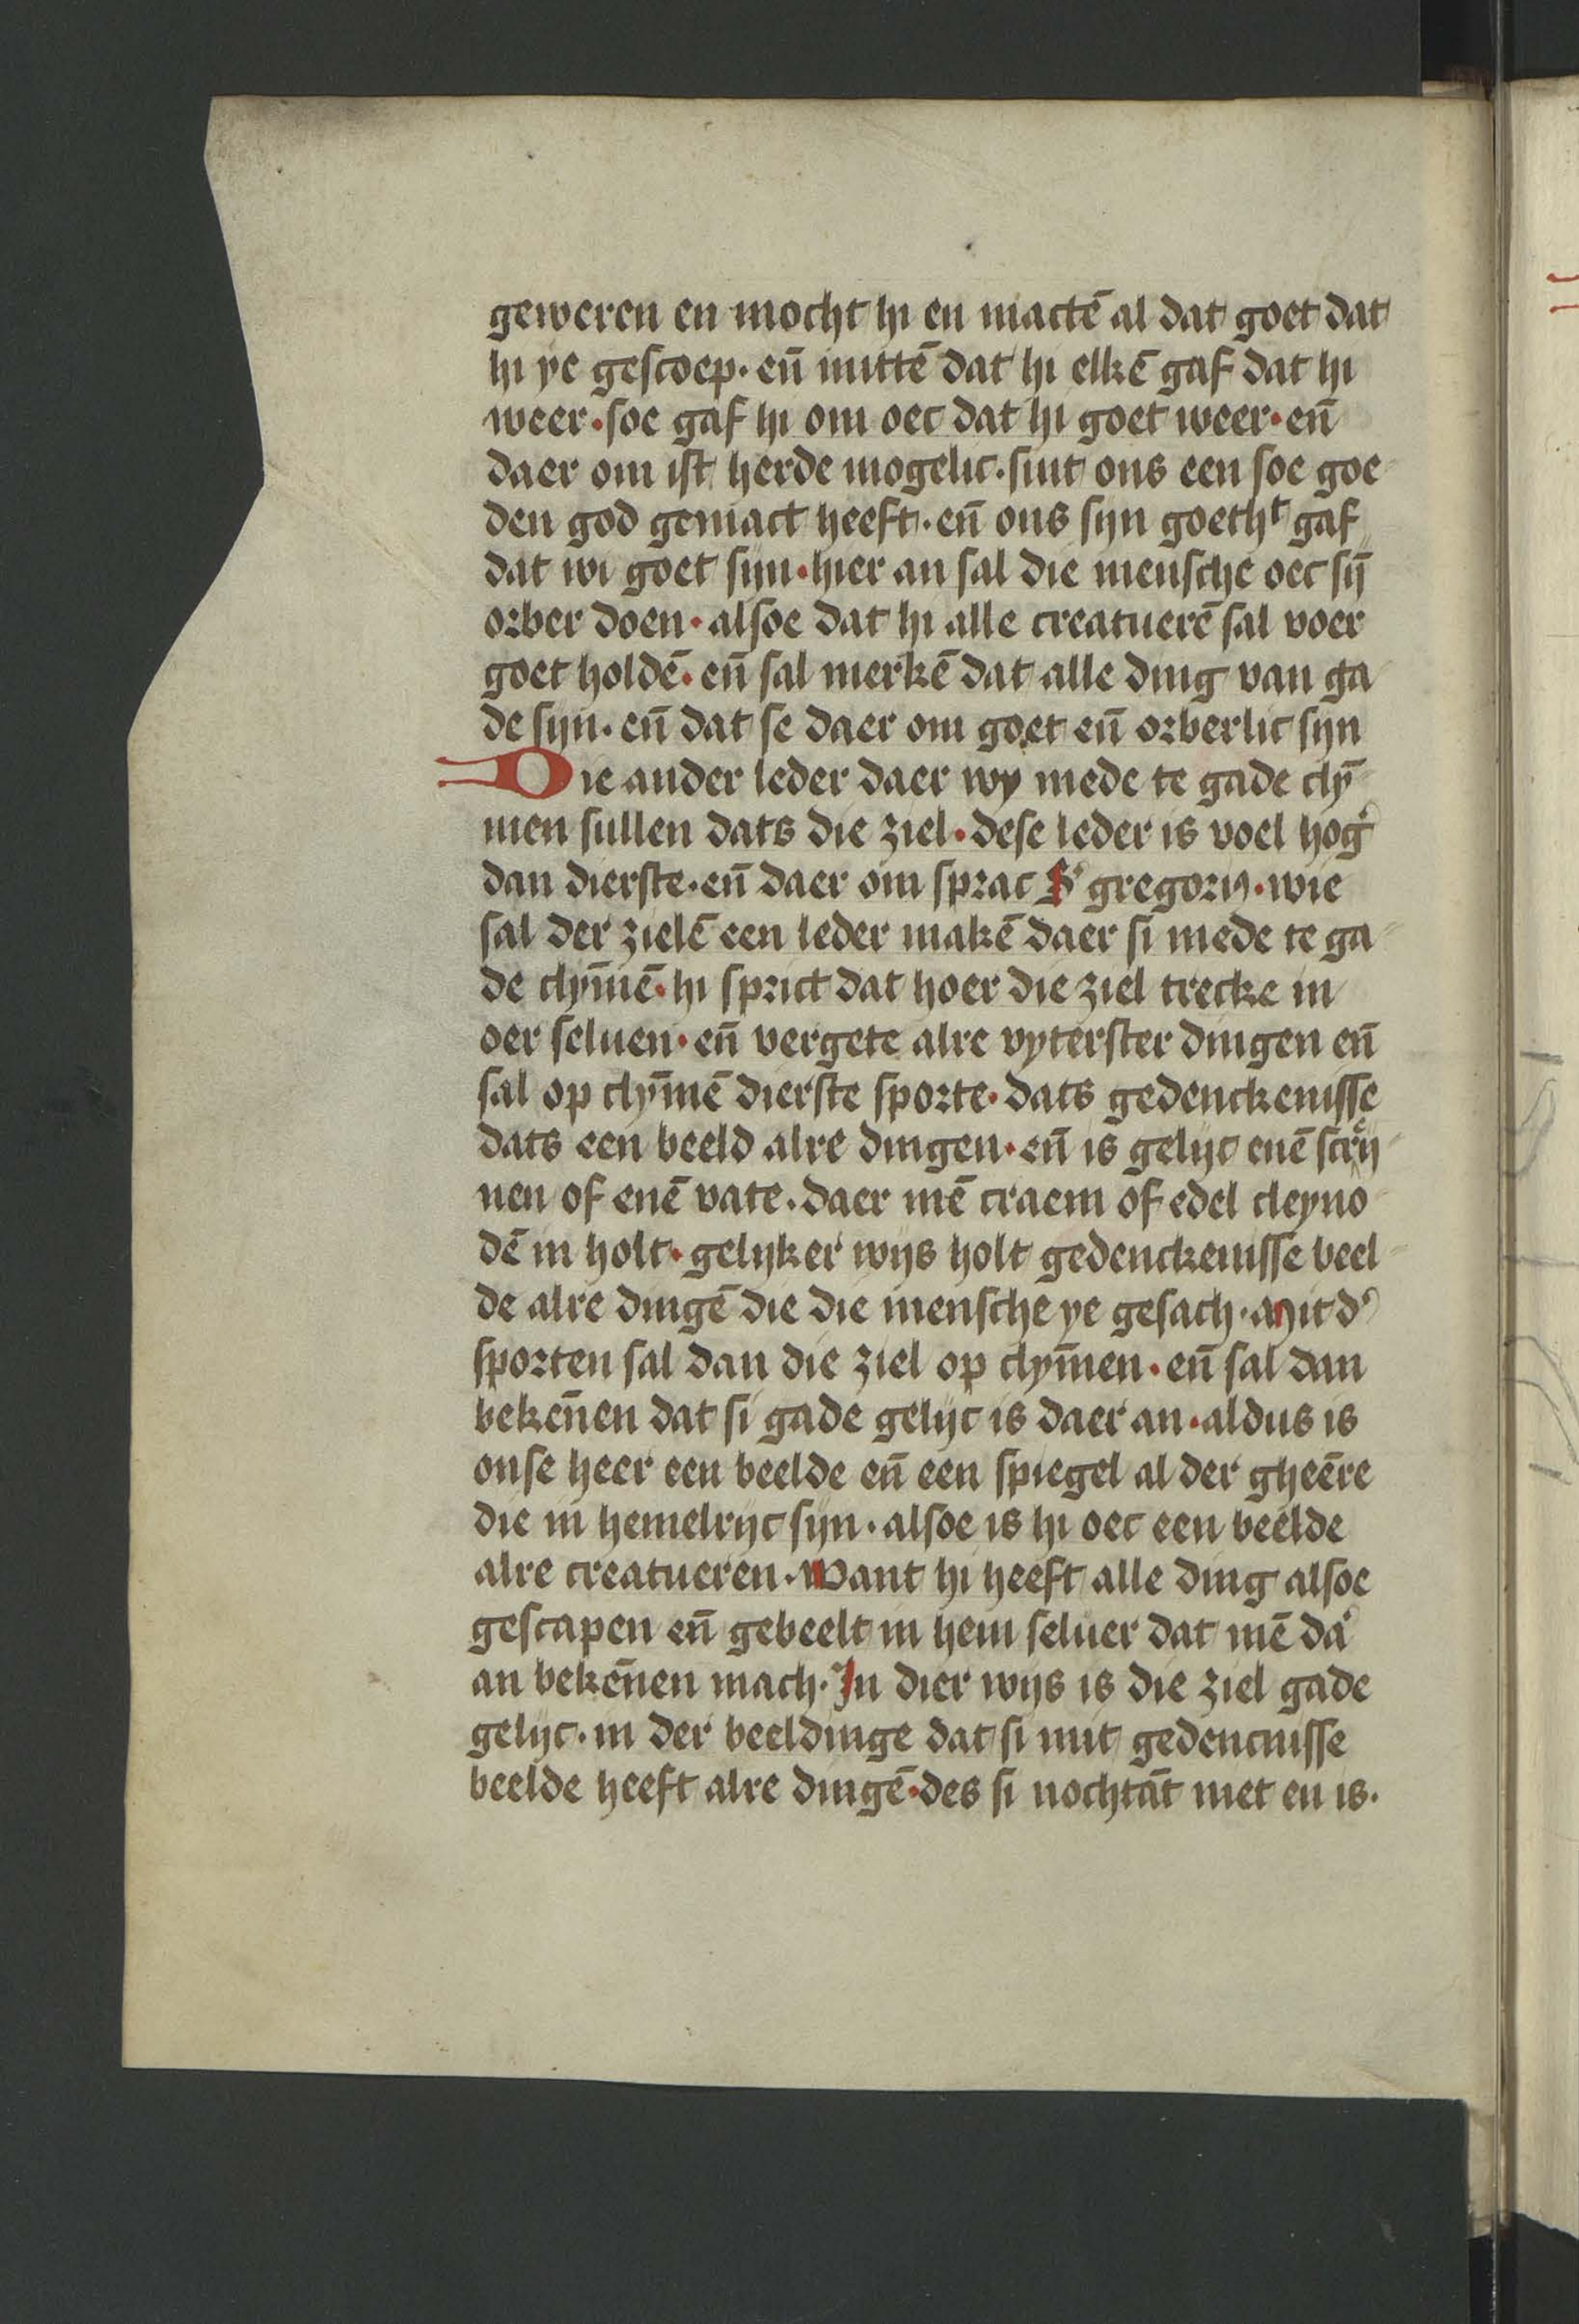 geweren en mocht hi en mactē al dat goet dat
hi ye gescoep · eñ mittē dat hi elkē gaf dat hi
weer · soe gaf hi om oec dat hi goet weer · eñ
daer om ist herde mogelic · sint ons een soe goe
den god gemact heeft · eñ ons syn goethᵗ gaf
dat wi goet sijn · hier an sal die mensche oec sȳ
orber doen · alsoe dat hi alle creatuerē sal voer
goet holdē · eñ sal merkē dat alle ding van ga
de sijn · eñ dat se daer om goet eñ orberlic sijn
Die ander leder daer wy mede te gade clȳ
men sullen dats die ziel · dese leder is voel hog'
dan dierste · eñ daer om sprac S' gregorij · wie
sal der zielē een leder makē daer si mede te ga
de clȳmē · hi sprict dat hoer die ziel trecke in
oer seluen · eñ vergete alre vyterster dingen eñ
sal op clȳmē dierste sporte · dats gedenckenisse
dats een beeld alre dingen · eñ is gelijc enē scrij
nen of enē vate · daer mē craem of edel cleyno
dē in holt · gelijker wijs holt gedenckenisse beel
de alre dingē die die mensche ye gesach · Mit d'
sporten sal dan die ziel op clȳmen · eñ sal dan
bekēnen dat si gade gelijc is daer an · aldus is
onse heer een beelde eñ een spiegel al der gheēre
die in hemelrijc sijn · alsoe is hi oec een beelde
alre creatueren · Want hi heeft alle ding alsoe
gescapen eñ gebeelt in hem seluer dat mē da'
an bekēnen mach · In dier wijs is die ziel gade
gelijc · in der beeldinge dat si mit gedencnisse
beelde heeft alre dingē · des si nochtāt niet en is ·